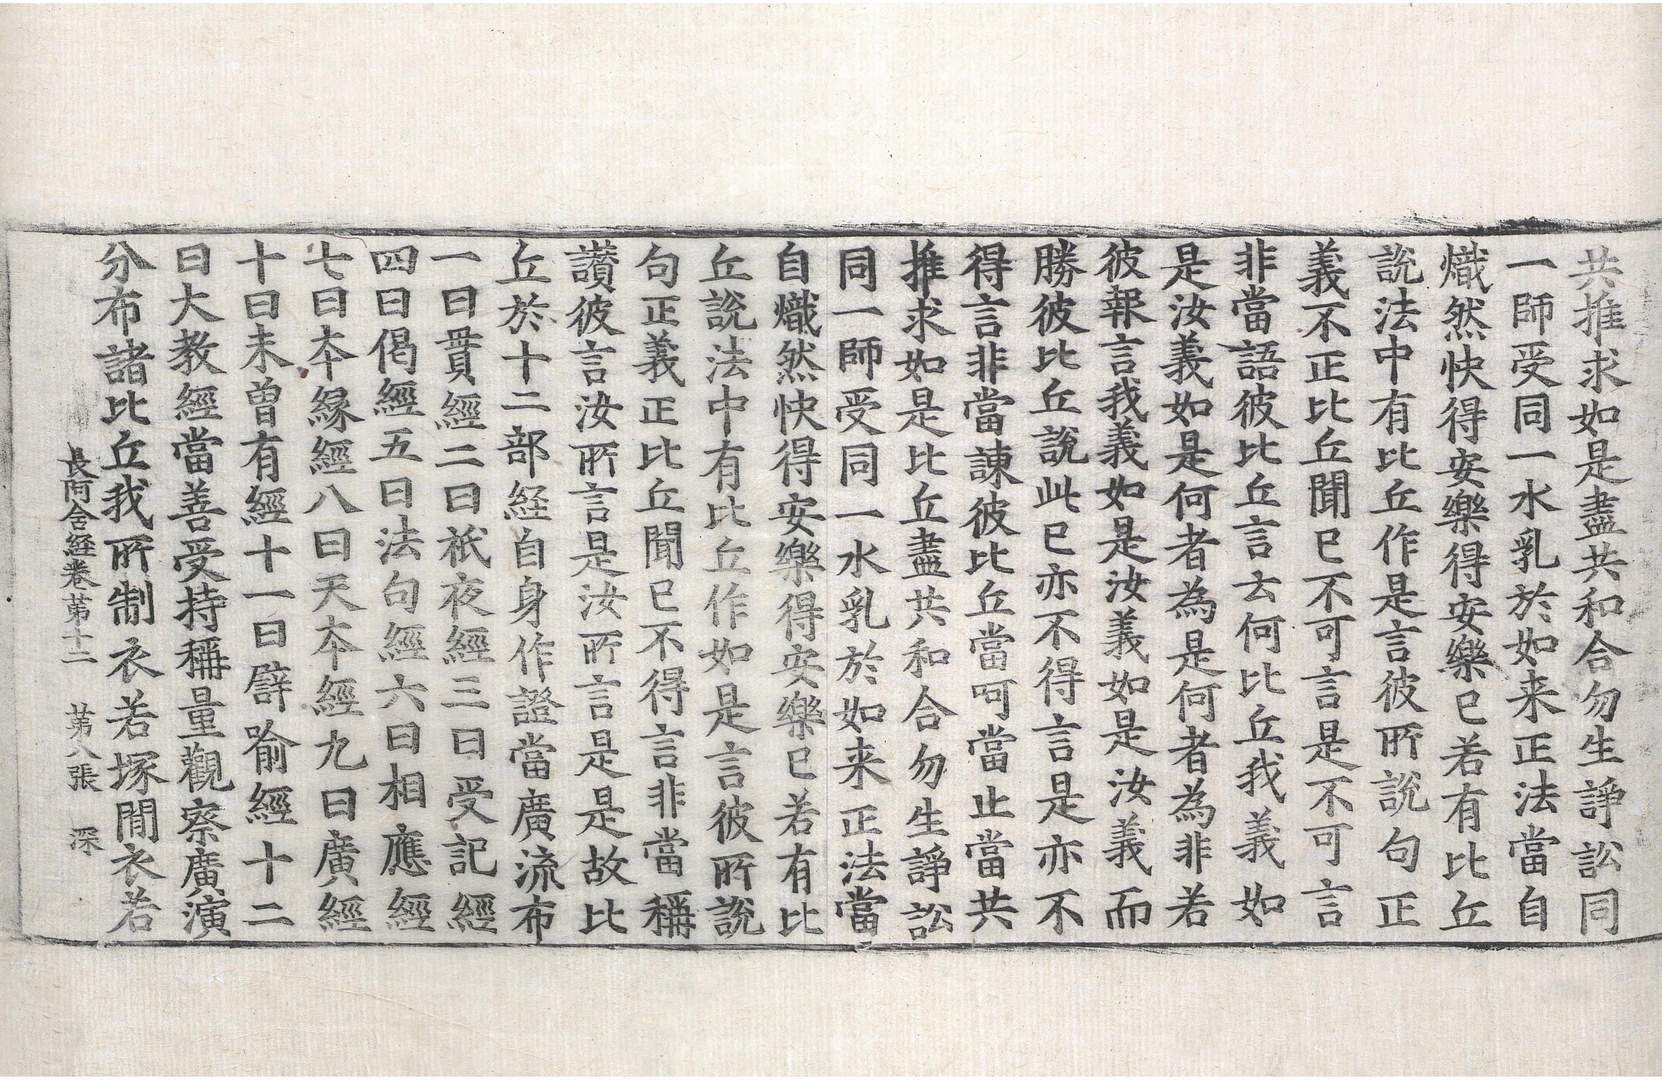 共推求如是盡共和合勿生諍訟同
一師受同一水乳於如来正法當自
熾然快得安樂得安樂已若有比丘
說法中有比丘作是言彼所說句正
義不正比丘聞已不可言是不可言
非當語彼比丘言云何比丘我義如
是汝義如是何者為是何者為非若
彼報言我義如是汝義如是汝義而
勝彼比丘說此已亦不得言是亦不
得言非當諫彼比丘當呵當止當共
推求如是比丘盡共和合勿生諍訟
同一師受同一水乳於如来正法當
自熾然快得安樂得安樂已若有比
丘說法中有比丘作如是言彼所說
句正義正比丘聞已不得言非當稱
讚彼言汝所言是汝所言是是故比
丘於十二部経自身作證當廣流布
一曰貫經二曰祇夜經三曰受記經
四曰偈經五曰法句經六曰相應經
七曰本緣經八曰天本經九曰廣經
十曰未曾有經十一曰譬喻經十二
曰大教經當善受持稱量觀察廣演
分布諸比丘我所制衣若塚間衣若
長阿含經卷第十二 第八張 深